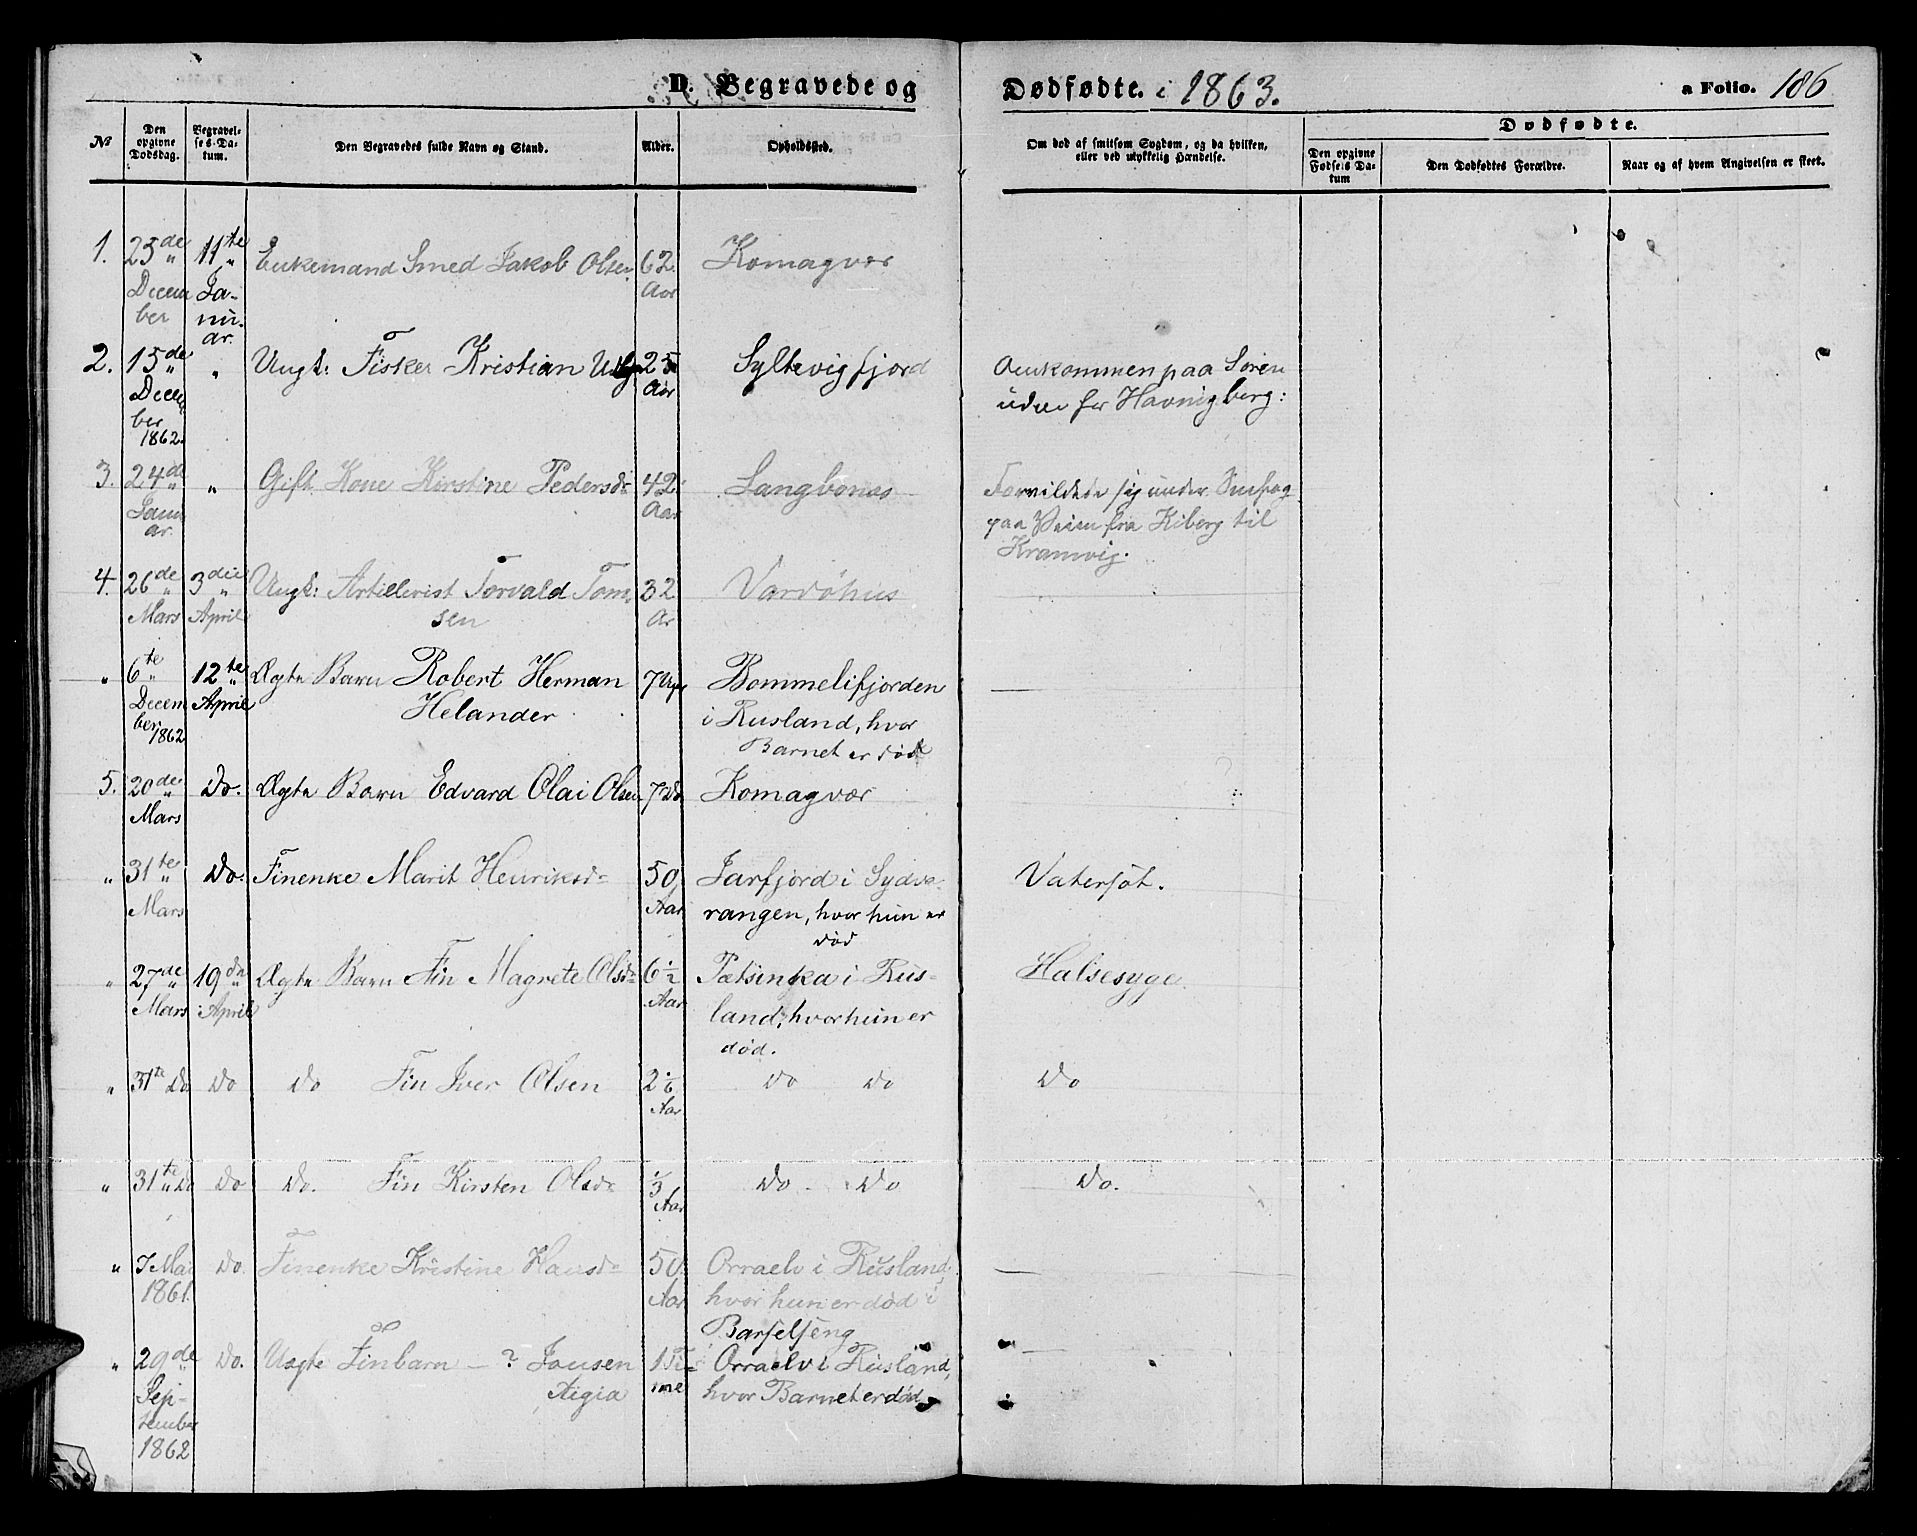 D. Begravede og Dødfødte. i 1863. a Folio. 186
No
Den opgivne Dødsdag.
Begravelses-Datum.
Den Begravedes fulde Navn og Stand.
Alder.
Opholdssted.
Om død af smitsom Sygdom, og da hvilken, eller ved ulykkelig Hændelse.
Dødfødte.
Den opgivne Fødsels Datum
Den Dødfødtes Forældre.
Naar og af hvem Angivelsen er skeet.
1. 23de December 11te Januar. Enkemand Smed Jakob Olsen 62 Aar Komagvær
2. 15de December 1862. " Ungk: Fisker Kristian 25 Aar Syltevigfjord Omkommen paa Søen
udenfor Havnigberg:
3. 24de Januar. " Gift Kone Kirstine Pedersd: 42 Aar Langbunes Forvildede sig under Snefog
paa Veien fra Kiberg til
Kramvig.
4. 26de Mars 3die April Ungk: Artillerist Torvald Tomsen 32 Ar Vardøhus
" 6te December 1862 12te April Ægte Barn Robert Herman 7 Uger Bommelifjorden
Helander i Rusland, hvor
Barnet er død
5. 20de Mars Do. Ægte Barn Edvard Olai Olsen 7 Do Komagvær
" 31te Mars Do. Finenke Marit Henriksd: 50 Aar Jarfjord i Sydva-
rangen, hvor hun er
død Vatersot.
" 27de Mars 19de April Ægte Barn Fin Magrete Olsd: 6 1/2 Aar Petsinka i Rus-
land, hvor hun er
død. Halsesyge
" 31te Do Do Do Fin Iver Olsen 2 1/6 Aar Do Do Do
" 31te Do Do Do. Fin Kirsten Olsd: 1/3 Aar Do Do Do.
" 7 Mai 1861. Do. Finenke Kristine Hansd: 50 Aar Orraelv i Rusland,
hvor hun er død i
Barselseng
" 29de September 1862 Do. Uægte Finbarn — ? Jansen 1 Time Orraelv i Rusland,
Aigia hvor Barnet er død